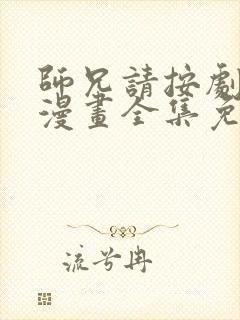 師兄請按劇
漫畫全集免
流兮冉